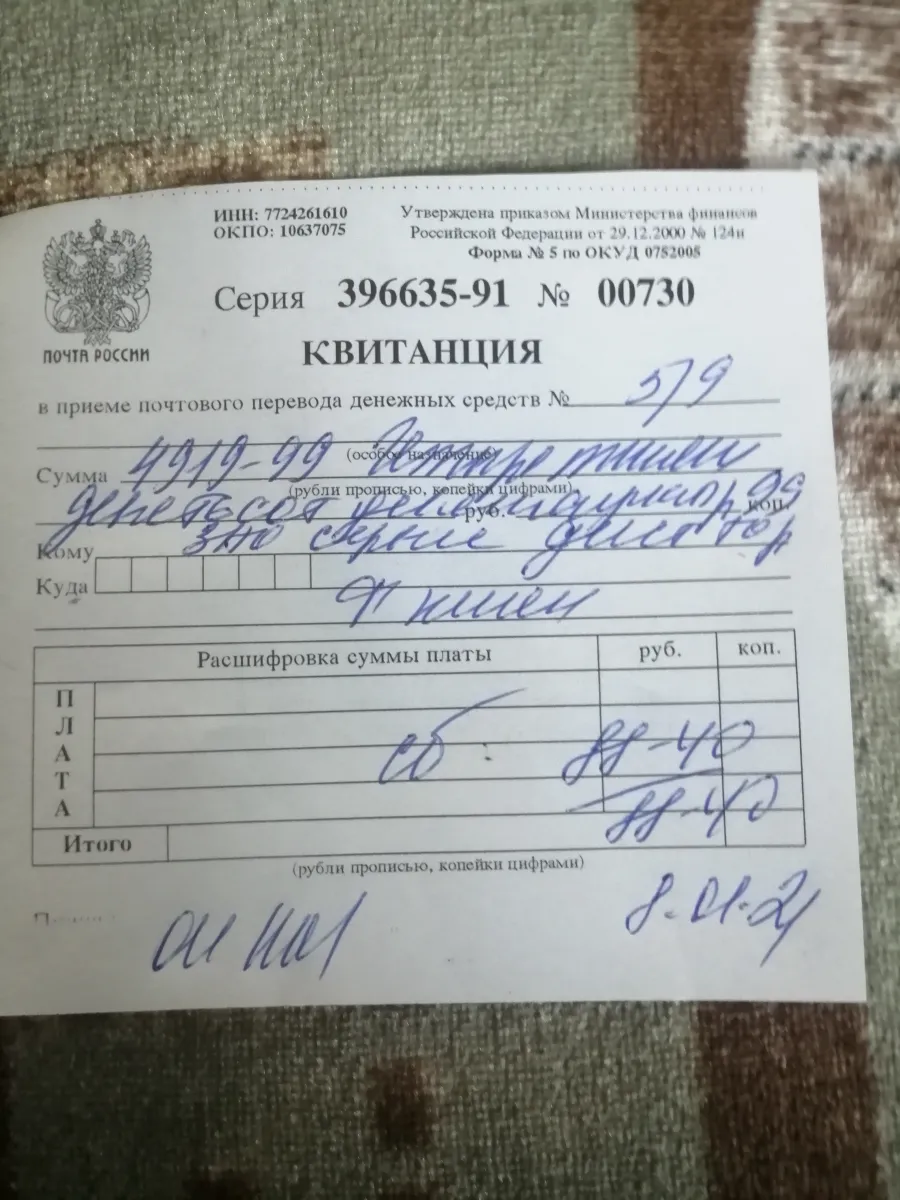 ИНН: 7724261610
ОКПО: 10637075
Утверждена приказом Министерства финансов
Российской Федерации от 29.12.2000 № 124н
Форма № 5 по ОКУД 0752005
ПОЧТА РОССИИ
Серия 396635-91 № 00730
КВИТАНЦИЯ
в приеме почтового перевода денежных средств № 579
(особое назначение)
Сумма 4919-99
(рубли прописью, копейки цифрами)
руб. 99 коп.
Кому
Куда
Расшифровка суммы платы руб. коп.
ПЛАТА
сб 88-40
88-40
Итого
(рубли прописью, копейки цифрами)
8.01.21